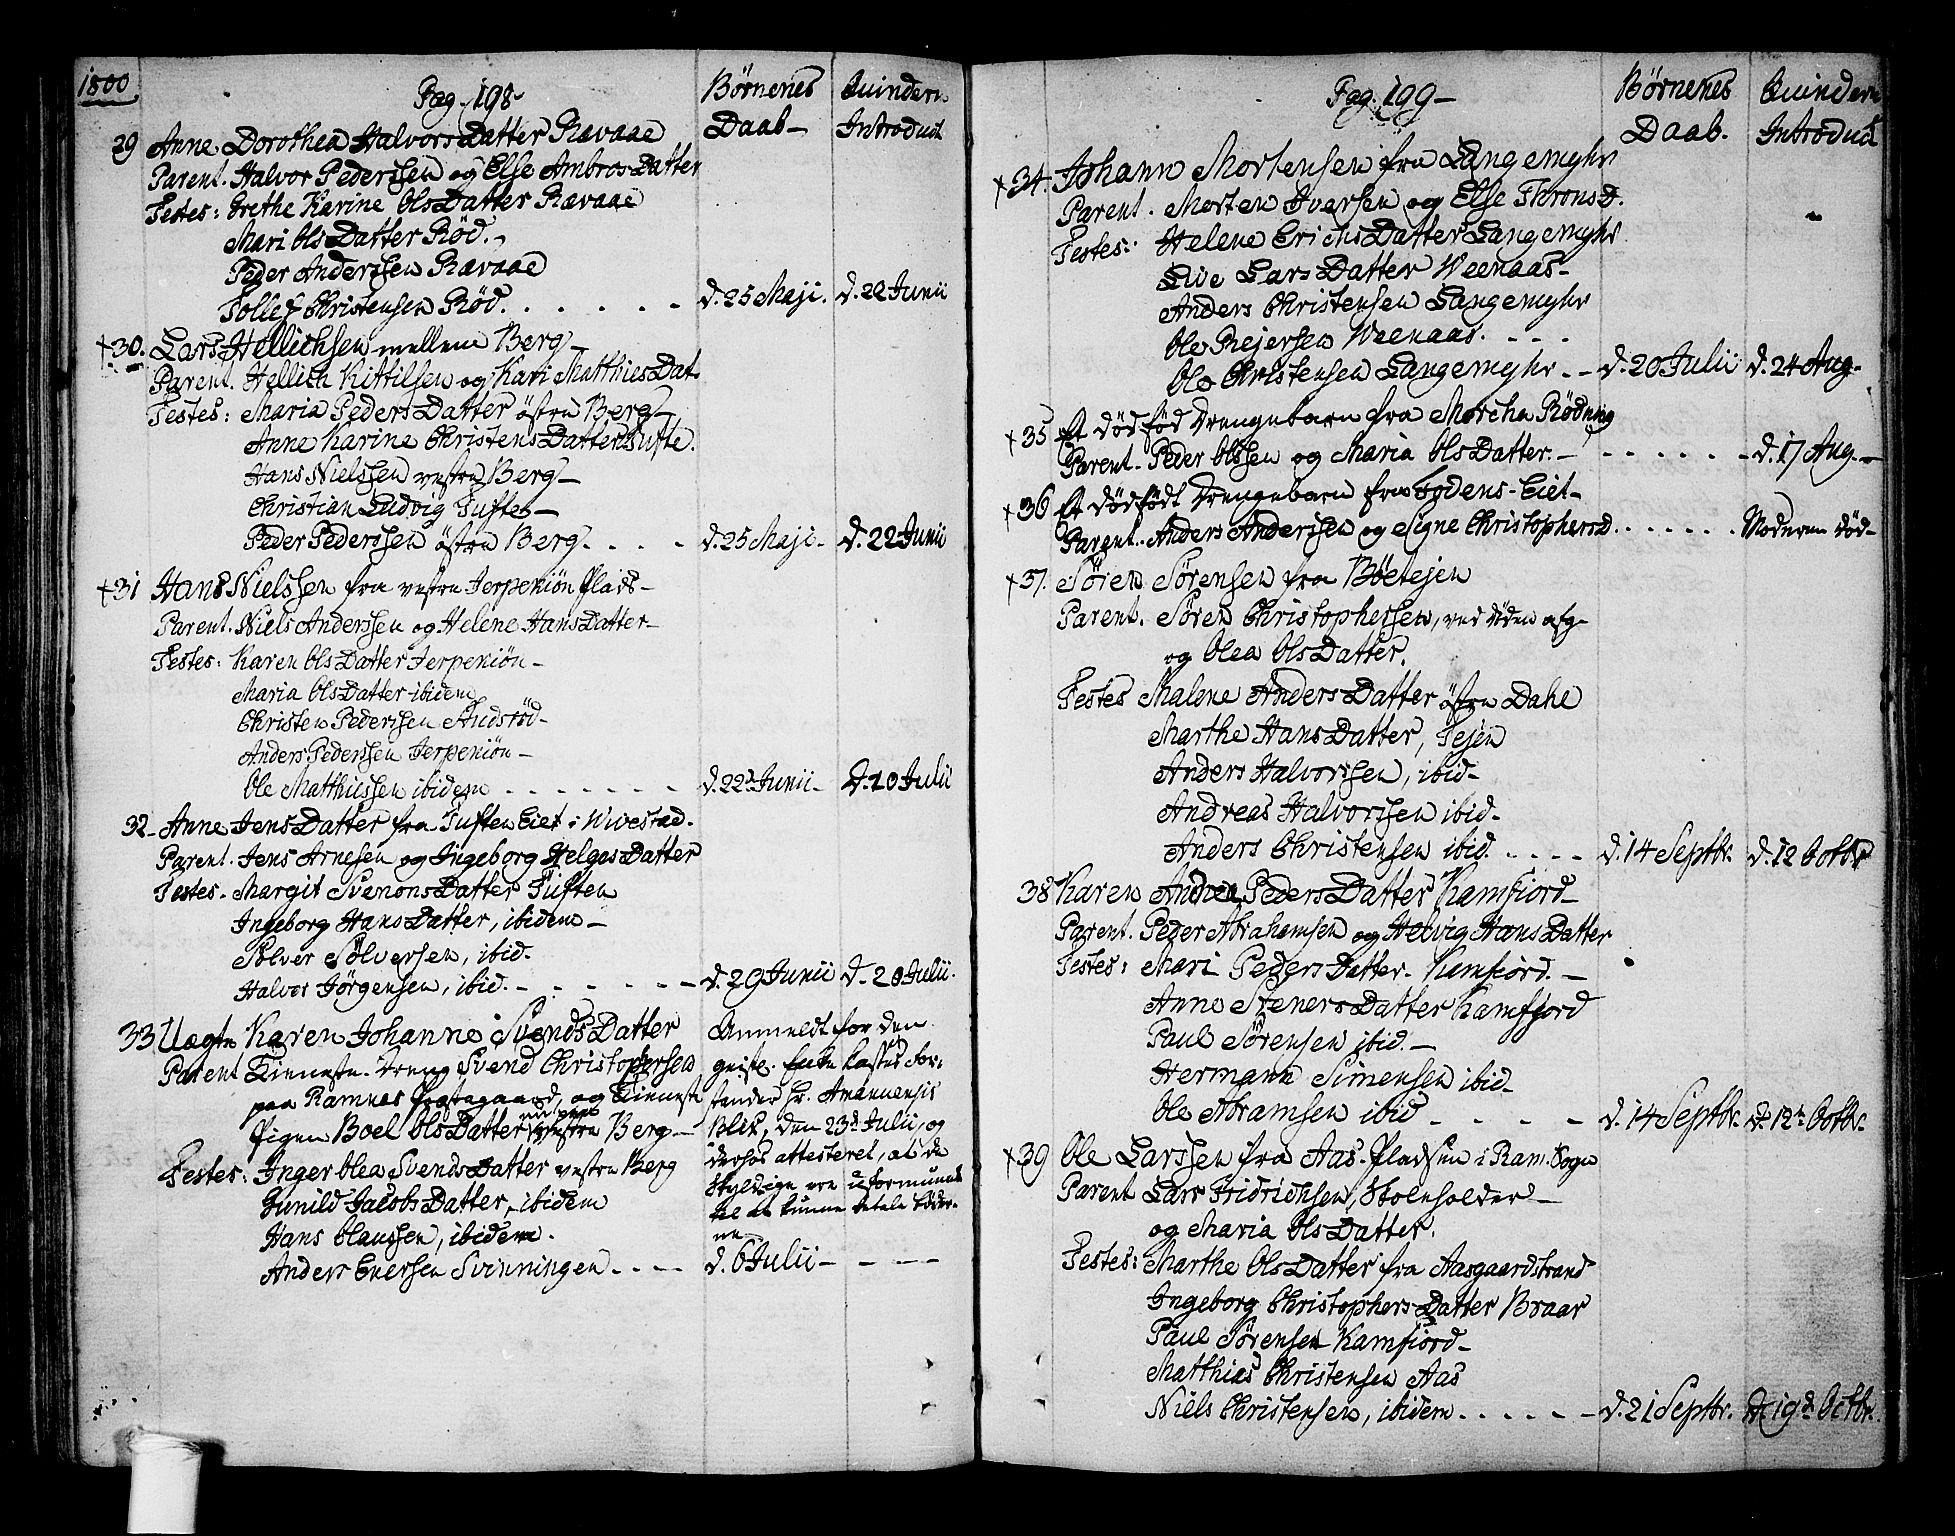 1800
Pag. 198
Børnenes Daab
Quindern Introduct
29 Anne Dorothea HalvorsDatter Rævaae
Parent. Halvor Pederssen og Else AmbrosDatter
Testes: Grethe Karine OlsDatter Rævaae
Mari OlsDatter Rød.
Peder Anderssen Rævaae
Tollef Christensen Rød. d. 25 Maji. d. 22 Junii
+30. Lars Hellichsen mellem Berg
Parent. Hellich Kittilsen og Kari MatthiesDat.
Testes: Maria PedersDatter østre Berg
Anne Karine ChristensDatter Tufte.
Hans Nielssen vestre Berg
Christian Ludvig Tufte
Peder Pederssen østre Berg. d. 25 Maji d. 22 Junii
+31 Hans Nielssen fra vestre Jerpeniøn Plads
Parent. Niels Anderssen og Helene HansDatter
Testes: Karen OlsDatter Jerpeniøn
Maria OlsDatter ibidem
Christen Pederssen Andsrød
Anders Pederssen Jerpeniøn
Ole Matthiessen ibidem d. 22d Junii d. 20 Julii
32 Anne JensDatter fra Tuften Eiet i Wivestad.
Parent. Jens Arnesen og Ingeborg HelgesDatter
Testes. Margit SvenonsDatter Tuften
Ingeborg HansDatter, ibidem
Sølver Sølversen, ibid.
Halvor Jørgensen, ibid. d. 29 Junii d. 20 Julii.
33 Uægte Karen Johanne SvendsDatter
Parent Tieneste-Dreng Svend Christophersen
paa Ramnes Præstegaard, og Tieneste
Pigen Boel OlsDatter vestre Berg
Testes: Inger Olea SvendsDatter vestre Berg
Gunild JacobsDatter, ibidem
Hans Claussen, ibidem.
Anders Eversen Svinningen d. 6 Julii
Anmeldt for den
geistl. Enke Casses For-
stander Hr. Amanuensis
Blix, den 23d Julii, og
derhos attesteret, at de
skyldige ere uformuende
til at kunne betale Bøder-
ne
Pag. 199
Børnenes Daab.
Quindern Introduct
+34. Johann Mortensen fra Langemyhr
Parent. Morten Iversen og Else ThronsD.
Testes: Helene ErichsDatter Langemyhr
Live LarsDatter Weenaas
Anders Christensen Langemyhr
Ole Rejersen Weenaas.
Ole Christensen Langemyhr d. 20 Julii d. 24 Aug.
+35 Et dødfød Drengebarn fra Morcha Rødning
Parent. Peder Olssen og Maria OlsDatter. d. 17 Aug.
+36 Et dødfødt Drengebarn fra Fodens-Eiet
Parent. Anders Anderssen og Signe ChristophersD. Moderen død
+37. Søren Sørensen fra Bøetejen
Parent. Søren Christophersen, ved Døden afg.
og Olea OlsDatter.
Testes Malene AndersDatter østre Dahl
Marthe HansDatter, Tejen
Anders Halvorssen, ibid
Andreas Halvorssen ibid
Anders Christensen ibid. d. 14 Septbr. d. 12 Octbr
38 Karen Andrea PedersDatter Kamfiord
Parent. Peder Abrahamsen og Helvig HansDatter
Testes: Mari PedersDatter. Kamfiord.
Anne StenersDatter Kamfjord
Paul Sørensen ibid.
Hermann Simensen ibid
Ole Abramsen ibid d. 14 Septbr. d. 12te Octbr.
+39 Ole Larssen fra Aas-Pladsen i Ram. Sogn
Parent Lars Fridrichsen, Skoleholder
og Maria OlsDatter.
Testes: Marthe OlsDatter fra Aasgaardstrand
Ingeborg ChristophersDatter Braar
Paul Sørensen Kamfiord
Matthias Christensen Aas
Niels Christensen, ibidem d. 21 Septbr. d. 19d Octbr.